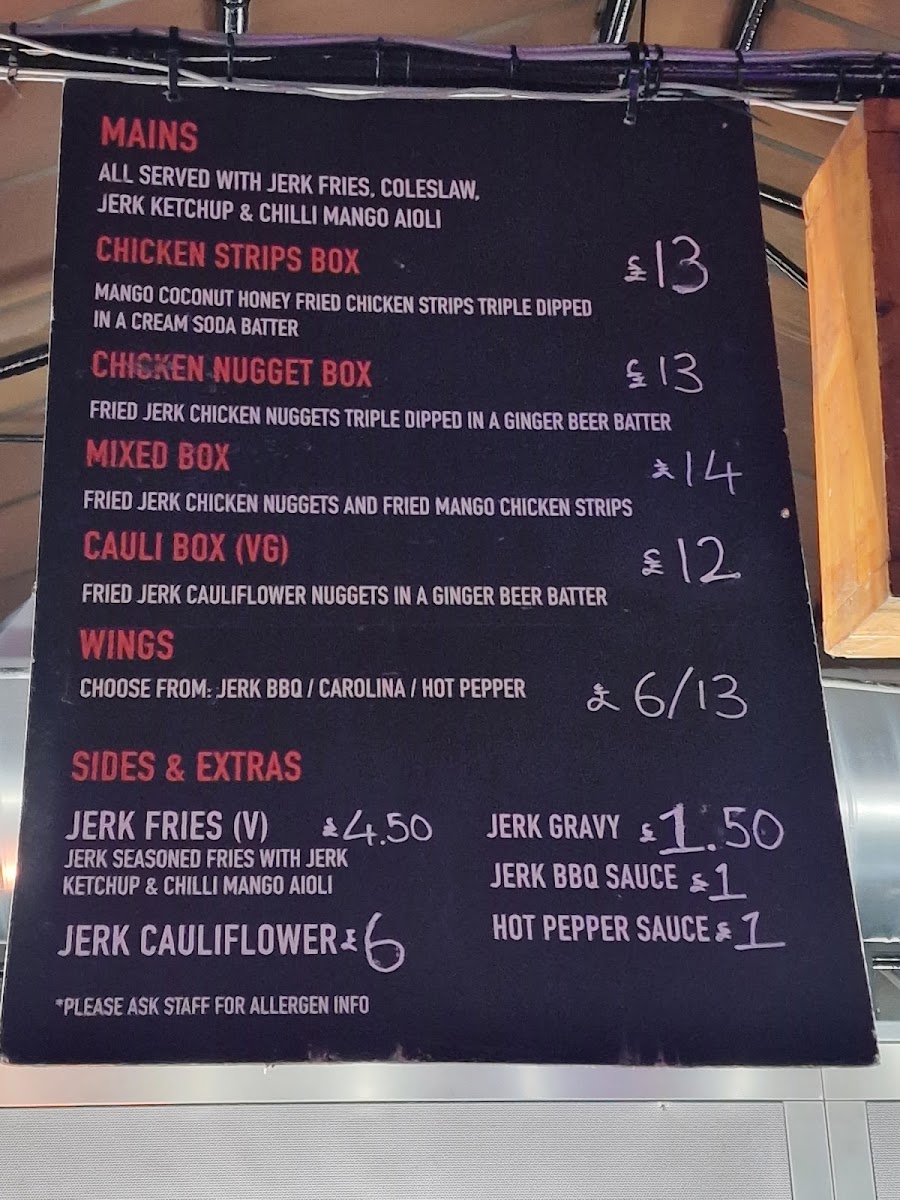 MAINS
ALL SERVED WITH JERK FRIES, COLESLAW,
JERK KETCHUP & CHILLI MANGO AIOLI
CHICKEN STRIPS BOX £13
MANGO COCONUT HONEY FRIED CHICKEN STRIPS TRIPLE DIPPED
IN A CREAM SODA BATTER
CHICKEN NUGGET BOX £13
FRIED JERK CHICKEN NUGGETS TRIPLE DIPPED IN A GINGER BEER BATTER
MIXED BOX £14
FRIED JERK CHICKEN NUGGETS AND FRIED MANGO CHICKEN STRIPS
CAULI BOX (VG) £12
FRIED JERK CAULIFLOWER NUGGETS IN A GINGER BEER BATTER
WINGS
CHOOSE FROM: JERK BBQ / CAROLINA / HOT PEPPER £6/13
SIDES & EXTRAS
JERK FRIES (V) £4.50
JERK SEASONED FRIES WITH JERK
KETCHUP & CHILLI MANGO AIOLI
JERK CAULIFLOWER £6
JERK GRAVY £1.50
JERK BBQ SAUCE £1
HOT PEPPER SAUCE £1
*PLEASE ASK STAFF FOR ALLERGEN INFO